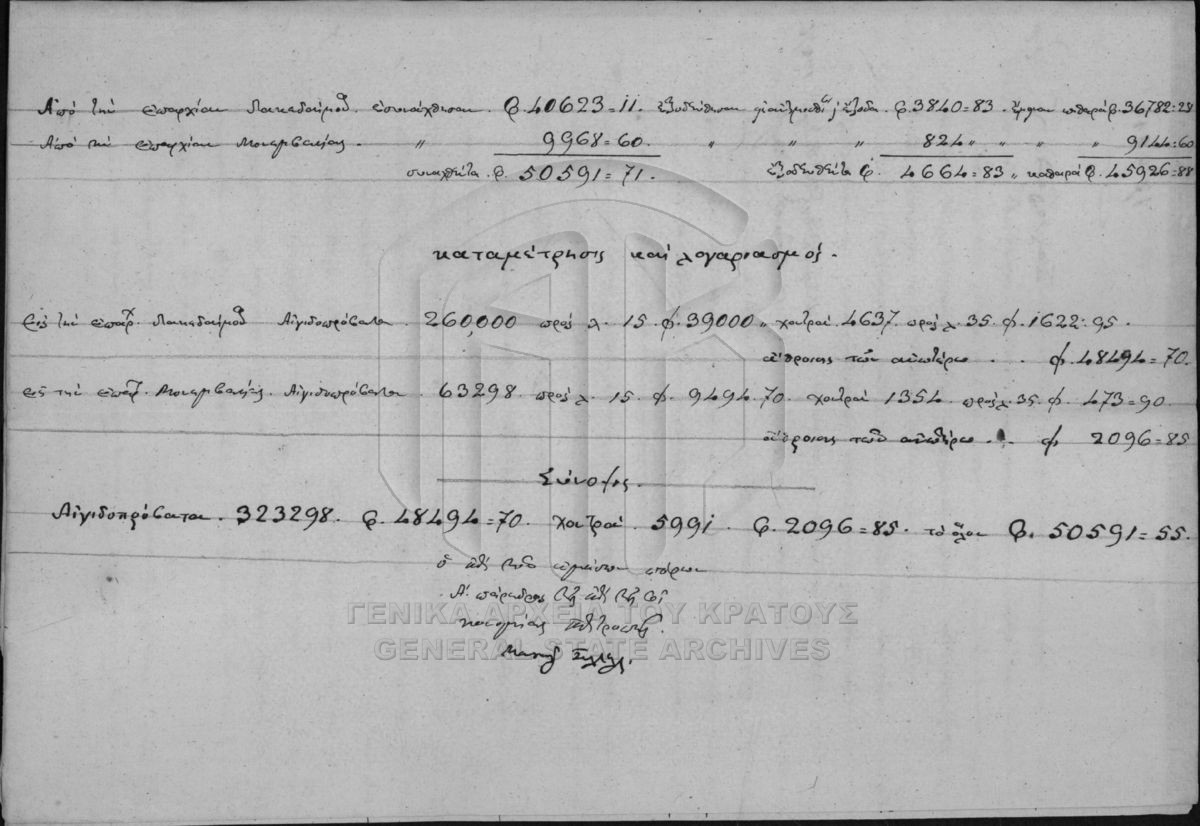 Ἀπὸ τὴν ἐπαρχίαν Λακεδαίμο ἐσυνάχθησαν. φ. 40623=11. ἐξωδεύθησαν ἔξοδα φ. 3840=83. ἔμειναν καθαρὰ φ. 36782:28
Ἀπὸ τὴν ἐπαρχίαν Μονεμβασίας. " 9968=60. " " " 824 " " " " 9144:60
συναχθέντα. φ. 50591=71. ἐξοδευθέντα φ. 4664=83 " καθαρὰ φ. 45926=88
καταμέτρησις καὶ λογαριασμός.
Εἰς τὴν ἐπαρχ. Λακεδαίμο Αἰγιδοπρόβατα. 260,000 πρὸς λ. 15. φ. 39000 " χοῖροι 4637. πρὸς λ. 35. φ. 1622:95.
ἄθροισις τῶν ἀνωτέρω . . φ. 48494=70.
εἰς τὴν ἐπαρχ. Μονεμβασίας. Αἰγιδοπρόβατα. 63298. πρὸς λ. 15. φ. 9494.70. χοῖροι 1354 πρὸς λ. 35. φ. 473=90.
ἄθροισις τῶν ἀνωτέρω . . φ 2096=85
Σύνοψις.
Αἰγιδοπρόβατα. 323298. φ. 48494=70. χοῖροι 5991. φ. 2096=85. τὸ ὅλον φ. 50591=55.
ὁ
Ἀ. πάρεδρος
ΓΕΝΙΚΑ ΑΡΧΕΙΑ ΤΟΥ ΚΡΑΤΟΥΣ
GENERAL STATE ARCHIVES